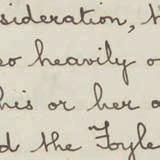 sideration, t
so heavily o
his or her a
d the Foyle